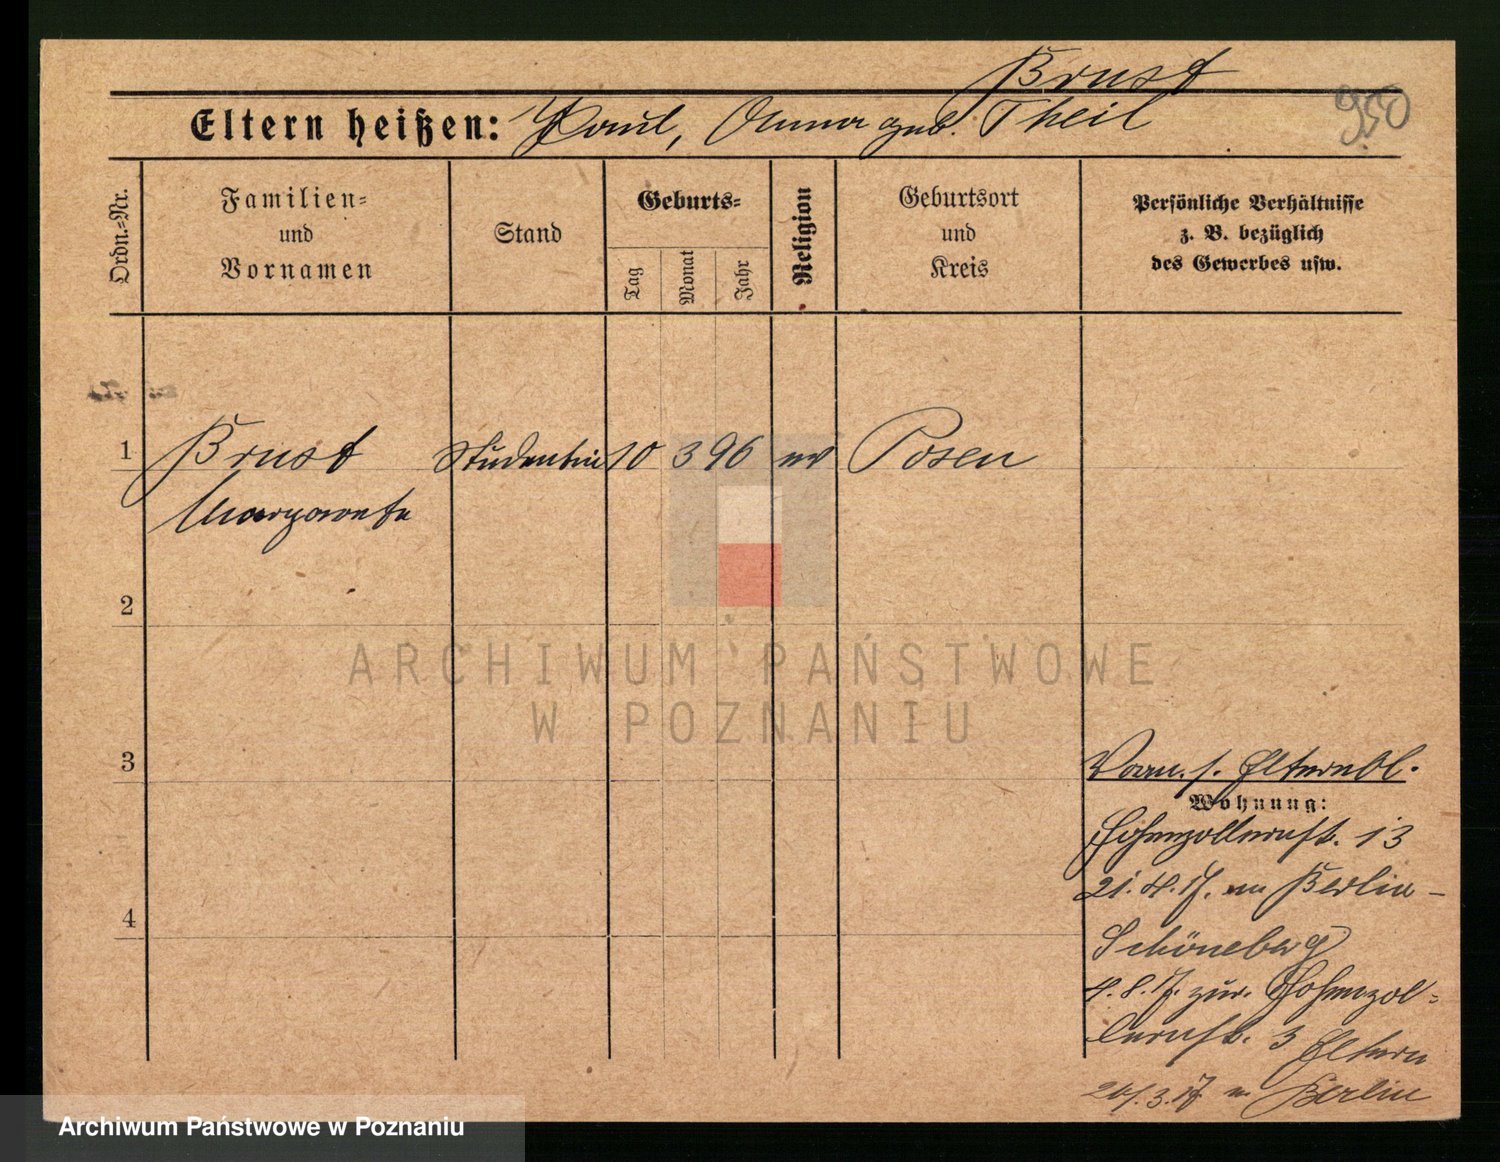 Brust
950
Eltern heißen: Paul, Anna geb. Theil
Ordn.-Nr.
Familien-
und
Vornamen
Stand
Geburts-
Tag
Monat
Jahr
Religion
Geburtsort
und
Kreis
Persönliche Verhältnisse
z. B. bezüglich
des Gewerbes usw.
1 Brust Studentin 10 3 96 ev Posen
Margarete
2
ARCHIWUM PAŃSTWOWE
W POZNANIU
3
Vorm. s. Elternbl.
Wohnung:
Hohenzollernstr. 13
21.4.17. n Berlin-
4
Schöneberg
4.8.17. zur. Hohenzol-
lernstr. 3 Eltern
20/.3.17 n Berlin
Archiwum Państwowe w Poznaniu